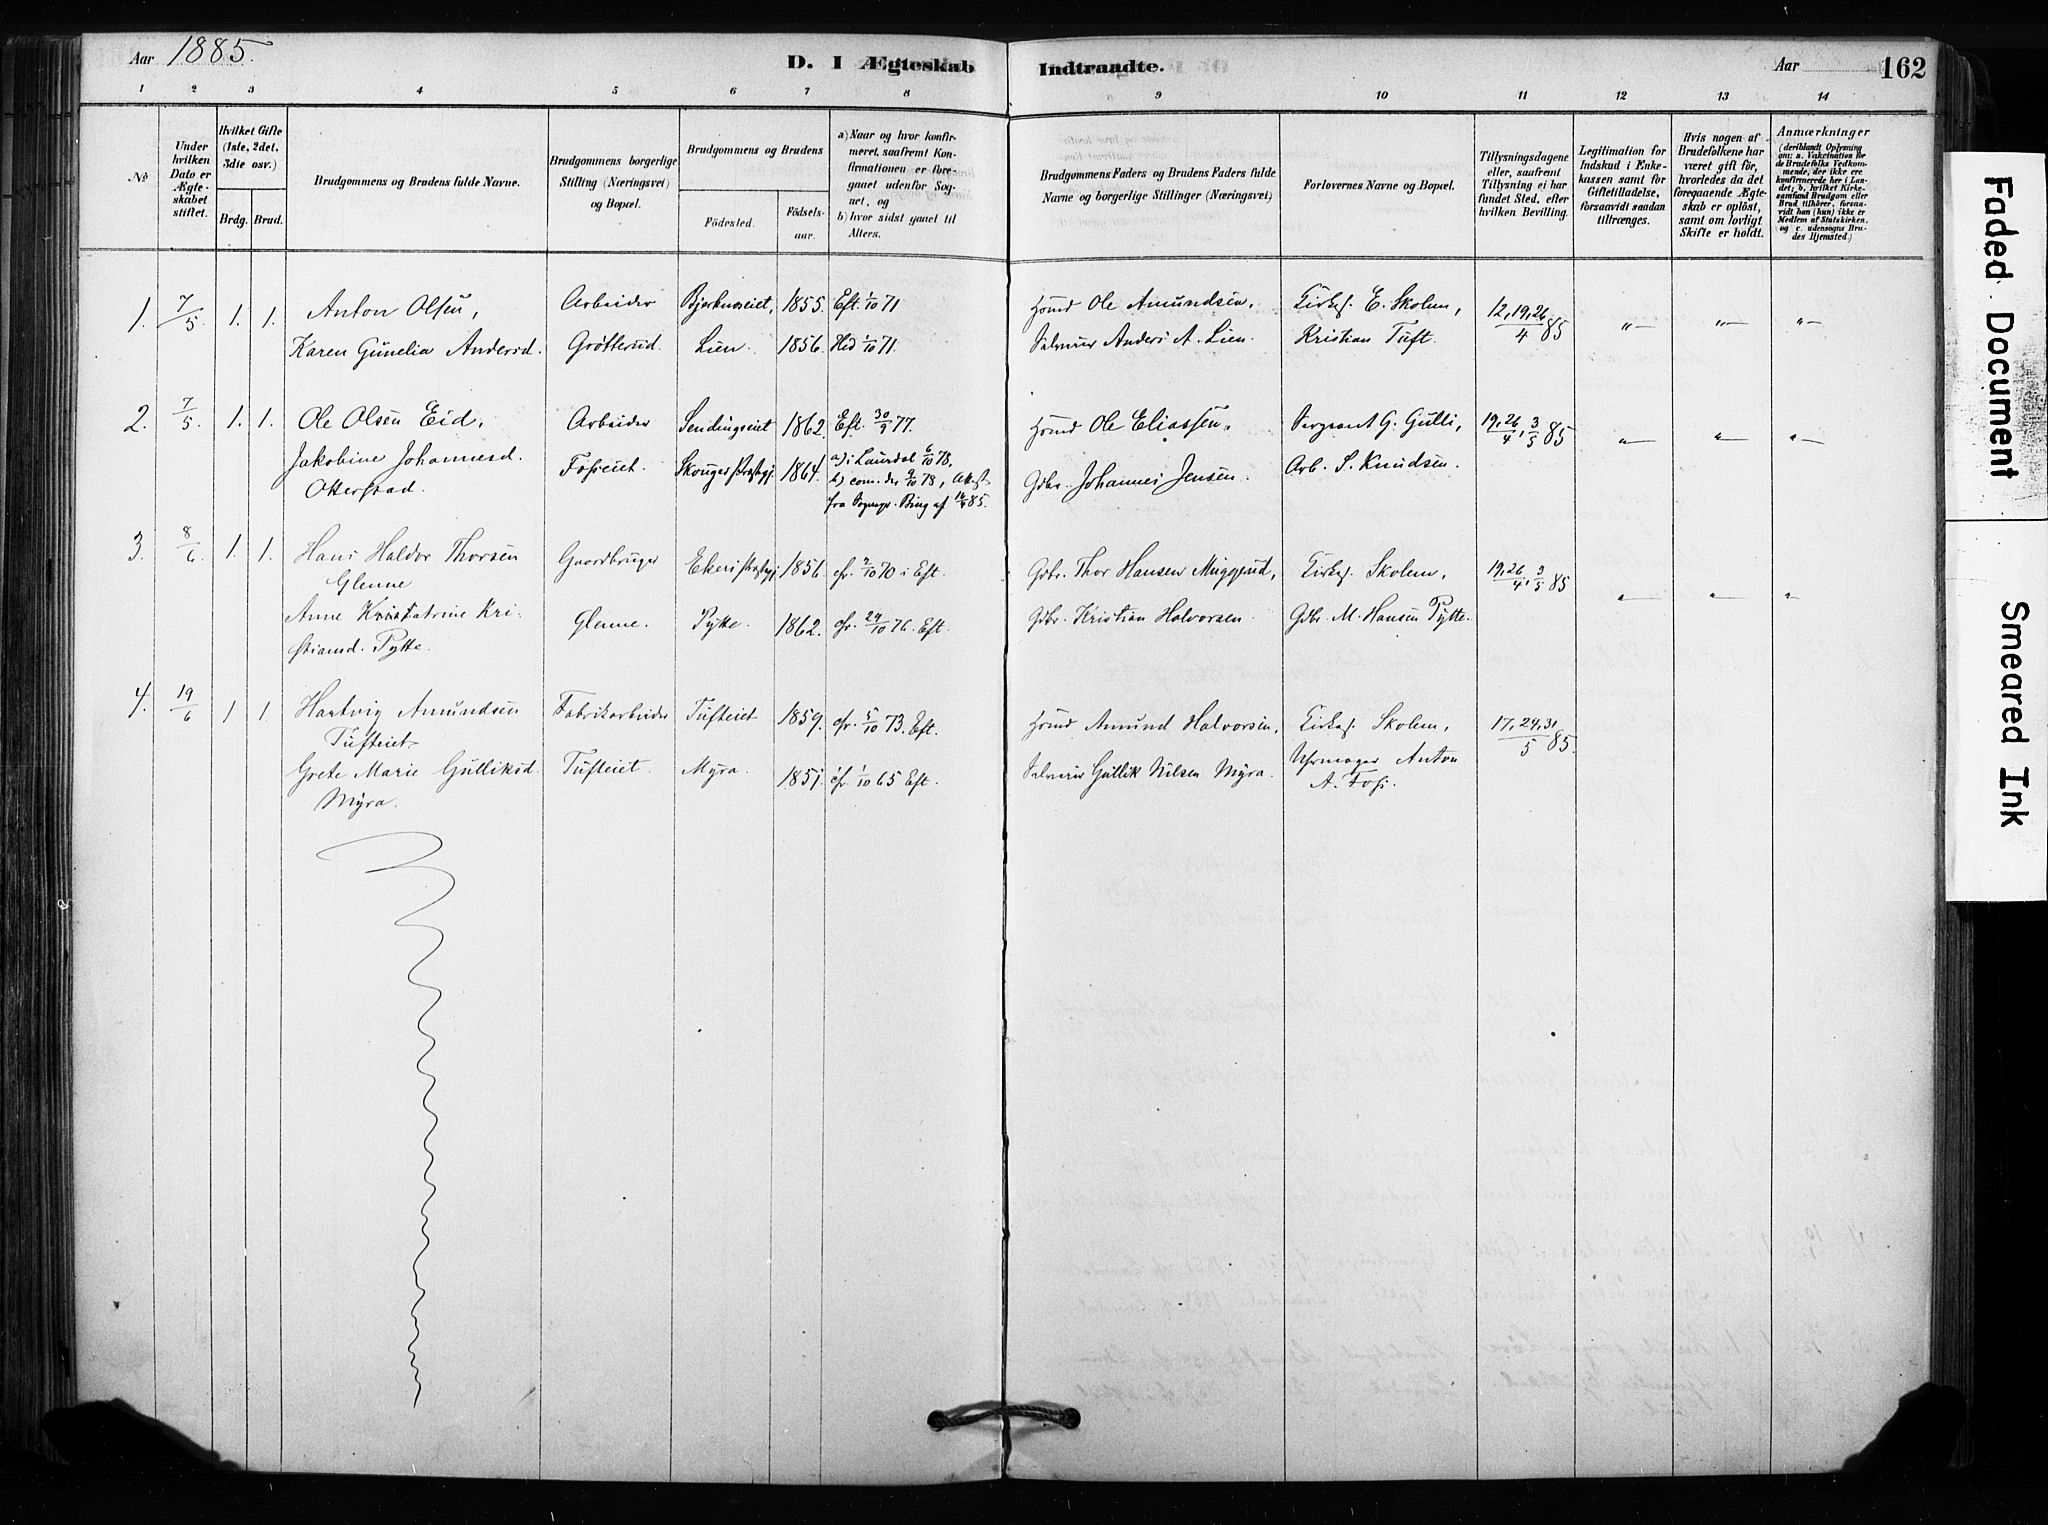 Aar 1885.
D. I Ægteskab Indtraadte.
Aar 162
1 2 3 4 5 6 7 8 9 10 11 12 13 14
No
Under hvilken Dato er Ægteskabet stiftet.
Hvilket Gifte (1ste, 2det, 3die osv.)
Brdg. Brud.
Brudgommens og Brudens fulde Navne.
Brudgommens borgerlige Stilling (Næringsvei) og Bopæl.
Brudgommens og Brudens
Födested. Födselsaar.
a) Naar og hvor konfirmeret, saafremt Konfirmationen er foregaaet udenfor Sognet, og
b) hvor sidst gaaet til Alters.
Brudgommens Faders og Brudens Faders fulde Navne og borgerlige Stillinger (Næringsvei)
Forlovernes Navne og Bopæl.
Tillysningsdagene eller, saafremt Tillysning ei har fundet Sted, efter hvilken Bevilling.
Legitimation for Indskud i Enkekassen samt for Giftetilladelse, forsaavidt saadan tiltrænges.
Hvis nogen af Brudefolkene har været gift för, hvorledes da det foregaaende Ægteskab er oplöst, samt om lovligt Skifte er holdt.
Anmærkninger (deriblandt Oplysning om: a. Vakcination for de Brudefolks Vedkommende, der ikke ere konfirmerede her i Landet; b. hvilket Kirkesamfund Brudgom eller Brud tilhörer, forsaavidt han (hun) ikke er Medlem af Statskirken, og c. udensogns Brudes Hjemsted.)
1. 7/5. 1. 1. Anton Olsen, Arbeider Bjerknæseiet, 1855. Eft. 1/10 71 Hsmd Ole Amundsen, Kirkes. E. Skolem, 12,19,26/4 85 "— "— "—
Karen Gunelia Andersd. Grøtterud. Lien. 1856. Hed 1/10 71. Selveier Anders A. Lien. Kristian Tuft.
2. 7/5. 1. 1. Ole Olsen Eid, Arbeider Sendingseiet 1862. Eft. 30/9 77. Hsmd Ole Eliassen, Sergeant G. Gulli, 19,26/4, 3/5 85 "— "— "—
Jakobine Johannesd. Fosseiet. Skouger Præstgj. 1864. a) i Laurdal 6/10 78, Gdbr. Johannes Jensen. Arb. S. Knudsen.
Otterstad. b) com. der 9/10 78, Attest
fra Sognepr. Bing af 14/4 85.
3. 8/6. 1. 1. Hans Haldor Thorsen Gaardbruger Ekers Præstgj. 1856. cfr. 2/10 70 i Eft. Gdbr. Thor Hansen Muggerud, Kirkes. Skolem, 19,26/4, 3/5 85 "— "— "—
Glenne
Anne Katrine Kri- Glenne. Pytte. 1862. cfr. 29/10 76. Eft. Gdbr. Kristian Halvorsen. Gdbr. M. Hansen Pytte.
stiansd. Pytte.
4. 19/6 1 1. Hartvig Amundsen Fabrikarbeider Tufteiet 1859. cfr. 5/10 73. Eft. Hsmd Amund Halvorsen, Kirkes. Skolem, 17,24,31/5 85.
Tufteiet
Grete Marie Gulliksd. Tufteiet. Myra. 1851. cfr. 1/10 65 Eft. Selveier Gullik Nilsen Myra. Uhrmager Anton
Myra. A. Foss.
Faded Document
Smeared Ink